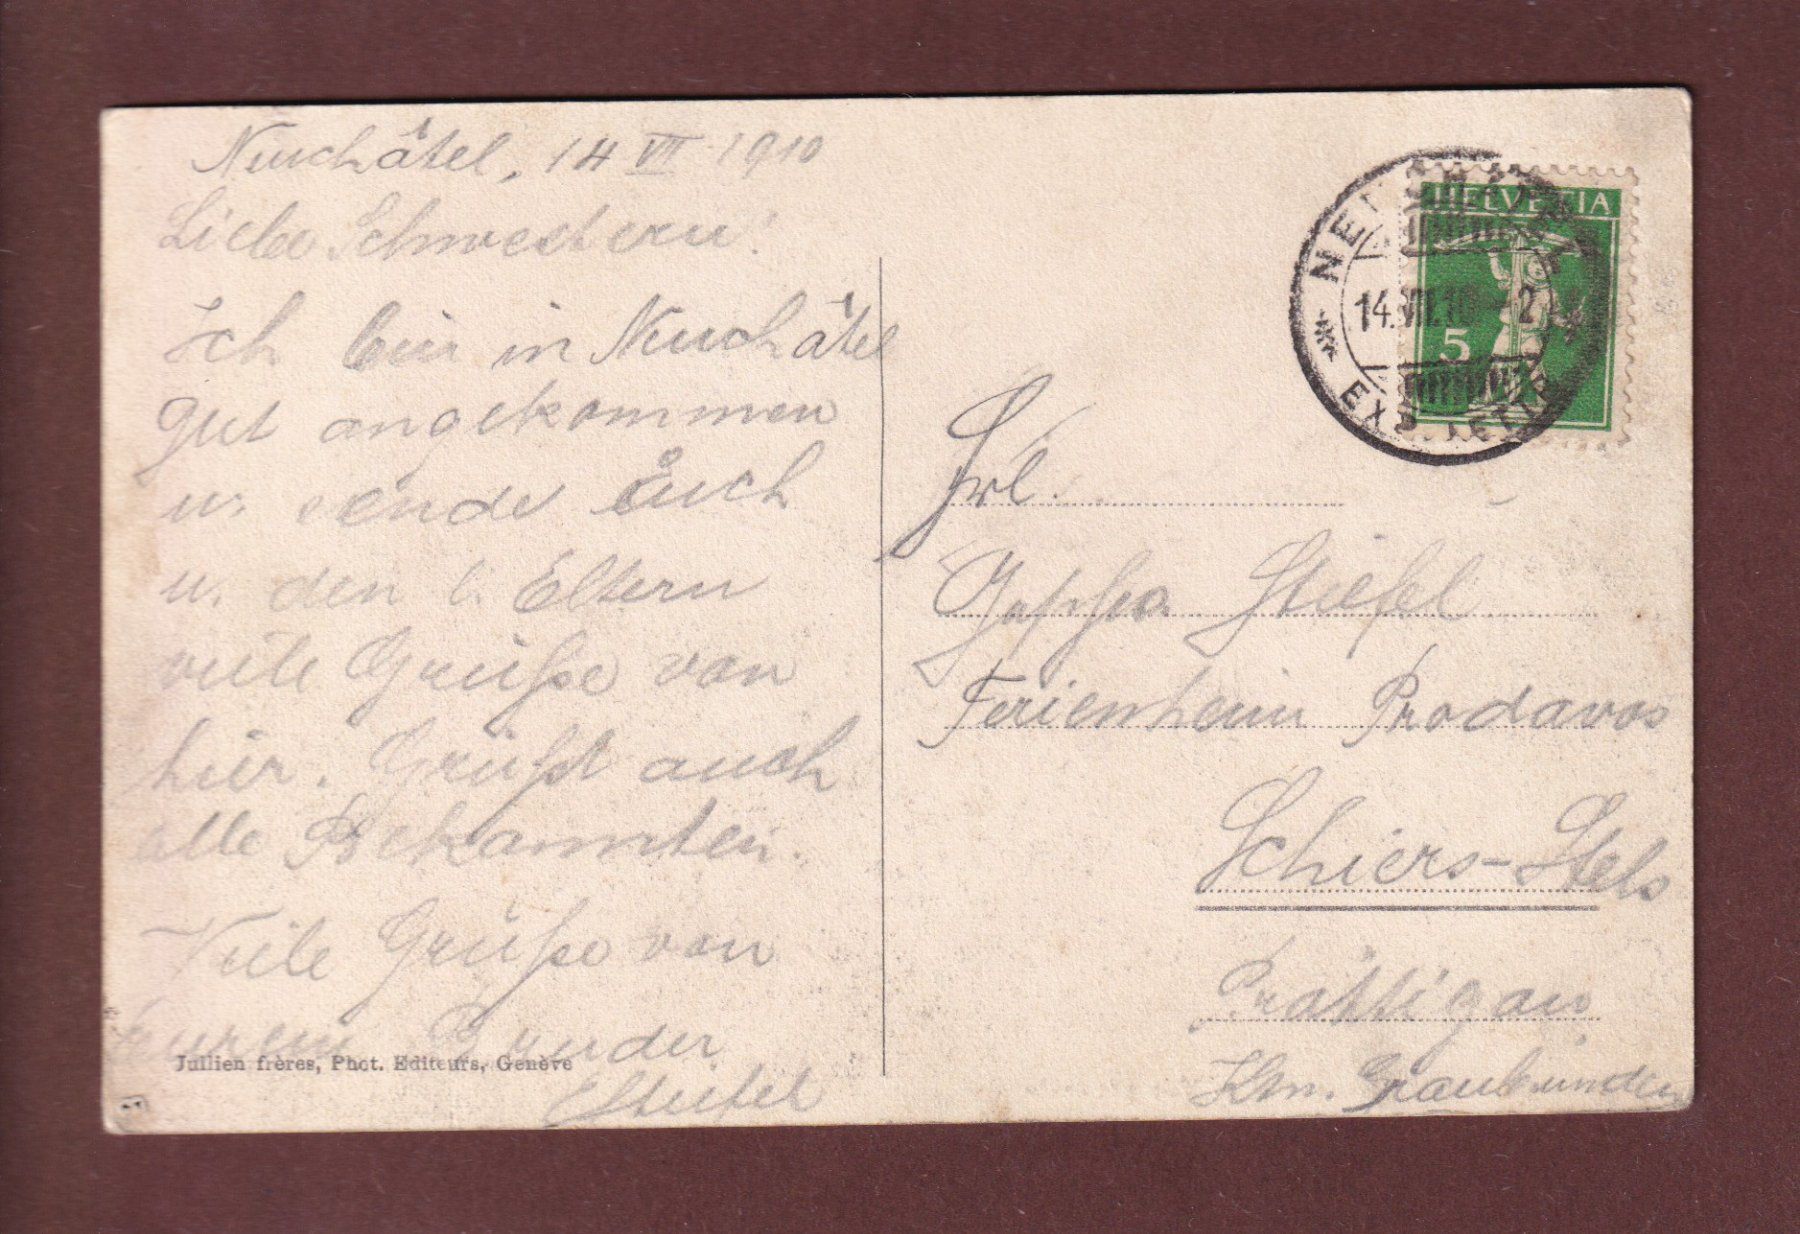 Neuchâtel, 14 VII 1910
Liebe Schwestern!
Ich bin in Neuchâtel
gut angekommen
u. sende Euch
u. den l. Eltern
viele Grüße von
hier. Grüßt auch
alle Bekannten.
Viele Grüße von
Eurem Bruder
EStiefel
Jullien frères, Phot. Editeurs, Genève
HELVETIA
5
14.VII.10
Frl.
Stiefel
Ferienheim Prodavos
Schiers-Stels
Prättigau
Ktn. Graubünden